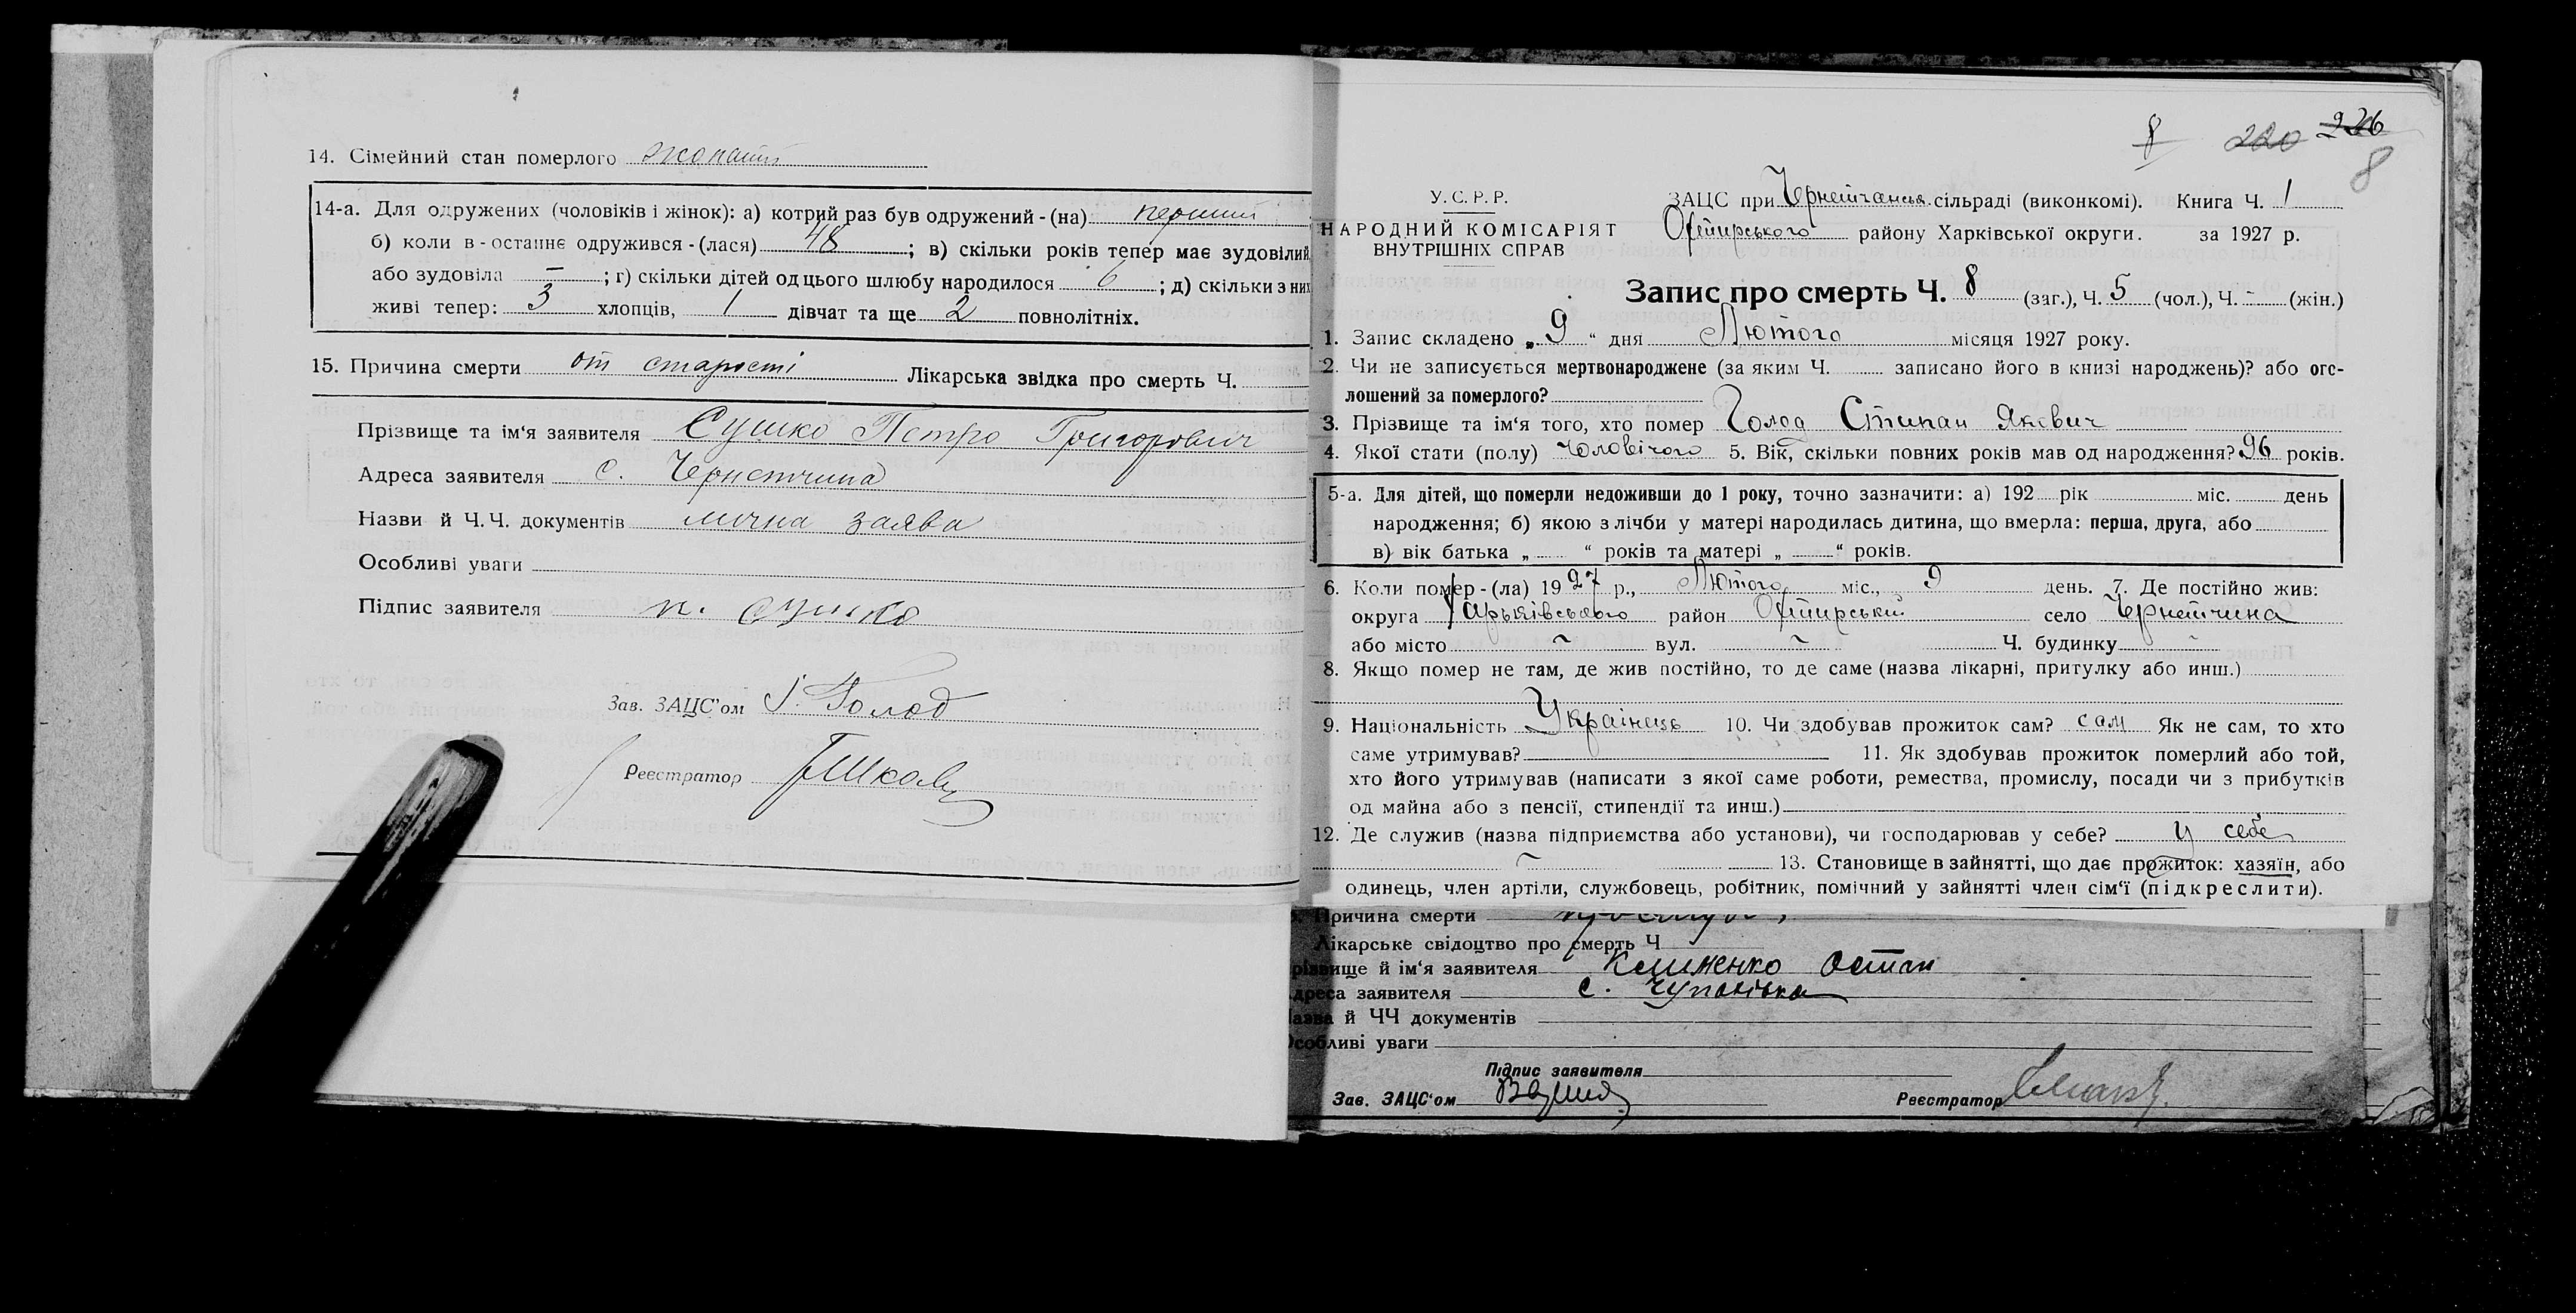 14. Сімейний стан померлого жонатий
14-а. Для одружених (чоловіків і жінок): а) котрий раз був одружений - (на) перший
б) коли в-останнє одружився - (лася) 48 ; в) скільки років тепер має зудовілий
або зудовіла — ; г) скільки дітей од цього шлюбу народилося 6 ; д) скільки з них
живі тепер: 3 хлопців, 1 дівчат та ще 2 повнолітніх.
15. Причина смерти от старости Лікарська звідка про смерть Ч.
Прізвище та ім‘я заявителя Сушко Петро Григорович
Адреса заявителя с. Чернетчина
Назви й Ч.Ч. документів лична заява
Особливі уваги
Підпис заявителя п. сушко
Зав. ЗАЦС'ом Голод
Реєстратор
8 220 226
8
У.С.Р.Р.
НАРОДНИЙ КОМІСАРІЯТ
ВНУТРІШНІХ СПРАВ
ЗАЦС при Чернетчанск. сільраді (виконкомі). Книга Ч. 1
Охтирського району Харківської округи. за 1927 р.
Запис про смерть Ч. 8 (заг.), Ч. 5 (чол.), Ч. - (жін.)
1. Запис складено „ 9 “ дня Лютого місяця 1927 року.
2. Чи не записується мертвонароджене (за яким Ч. записано його в книзі народжень)? або ого-
лошений за померлого?
3. Прізвище та ім‘я того, хто помер Голод Степан Якович
4. Якої стати (полу) Чоловічого 5. Вік, скільки повних років мав од народження? 96 років.
5-а. Для дітей, що померли недоживши до 1 року, точно зазначити: а) 192 рік міс. день
народження; б) якою з лічби у матері народилась дитина, що вмерла: перша, друга, або
в) вік батька „ “ років та матері „ “ років.
6. Коли помер - (ла) 1927 р., Лютого міс., 9 день. 7. Де постійно жив:
округа Харьківського район Охтирський село Чернетчина
або місто ~ вул. ~ Ч. будинку ~
8. Якщо помер не там, де жив постійно, то де саме (назва лікарні, притулку або инш.)
9. Національність Українець 10. Чи здобував прожиток сам? сам Як не сам, то хто
саме утримував? 11. Як здобував прожиток померлий або той,
хто його утримував (написати з якої саме роботи, ремества, промислу, посади чи з прибутків
од майна або з пенсії, стипендії та инш.)
12. Де служив (назва підприємства або установи), чи господарював у себе? у себе
~ 13. Становище в зайнятті, що дає прожиток: хазяїн, або
одинець, член артіли, службовець, робітник, помічний у зайнятті член сім‘ї (підкреслити).
Причина смерти
Лікарське свідоцтво про смерть Ч
різвище й ім‘я заявителя Клименко Остап
дреса заявителя с. Чупахівка
азва й ЧЧ документів
собливі уваги
Підпис заявителя
Зав. ЗАЦС‘ом
Реєстратор